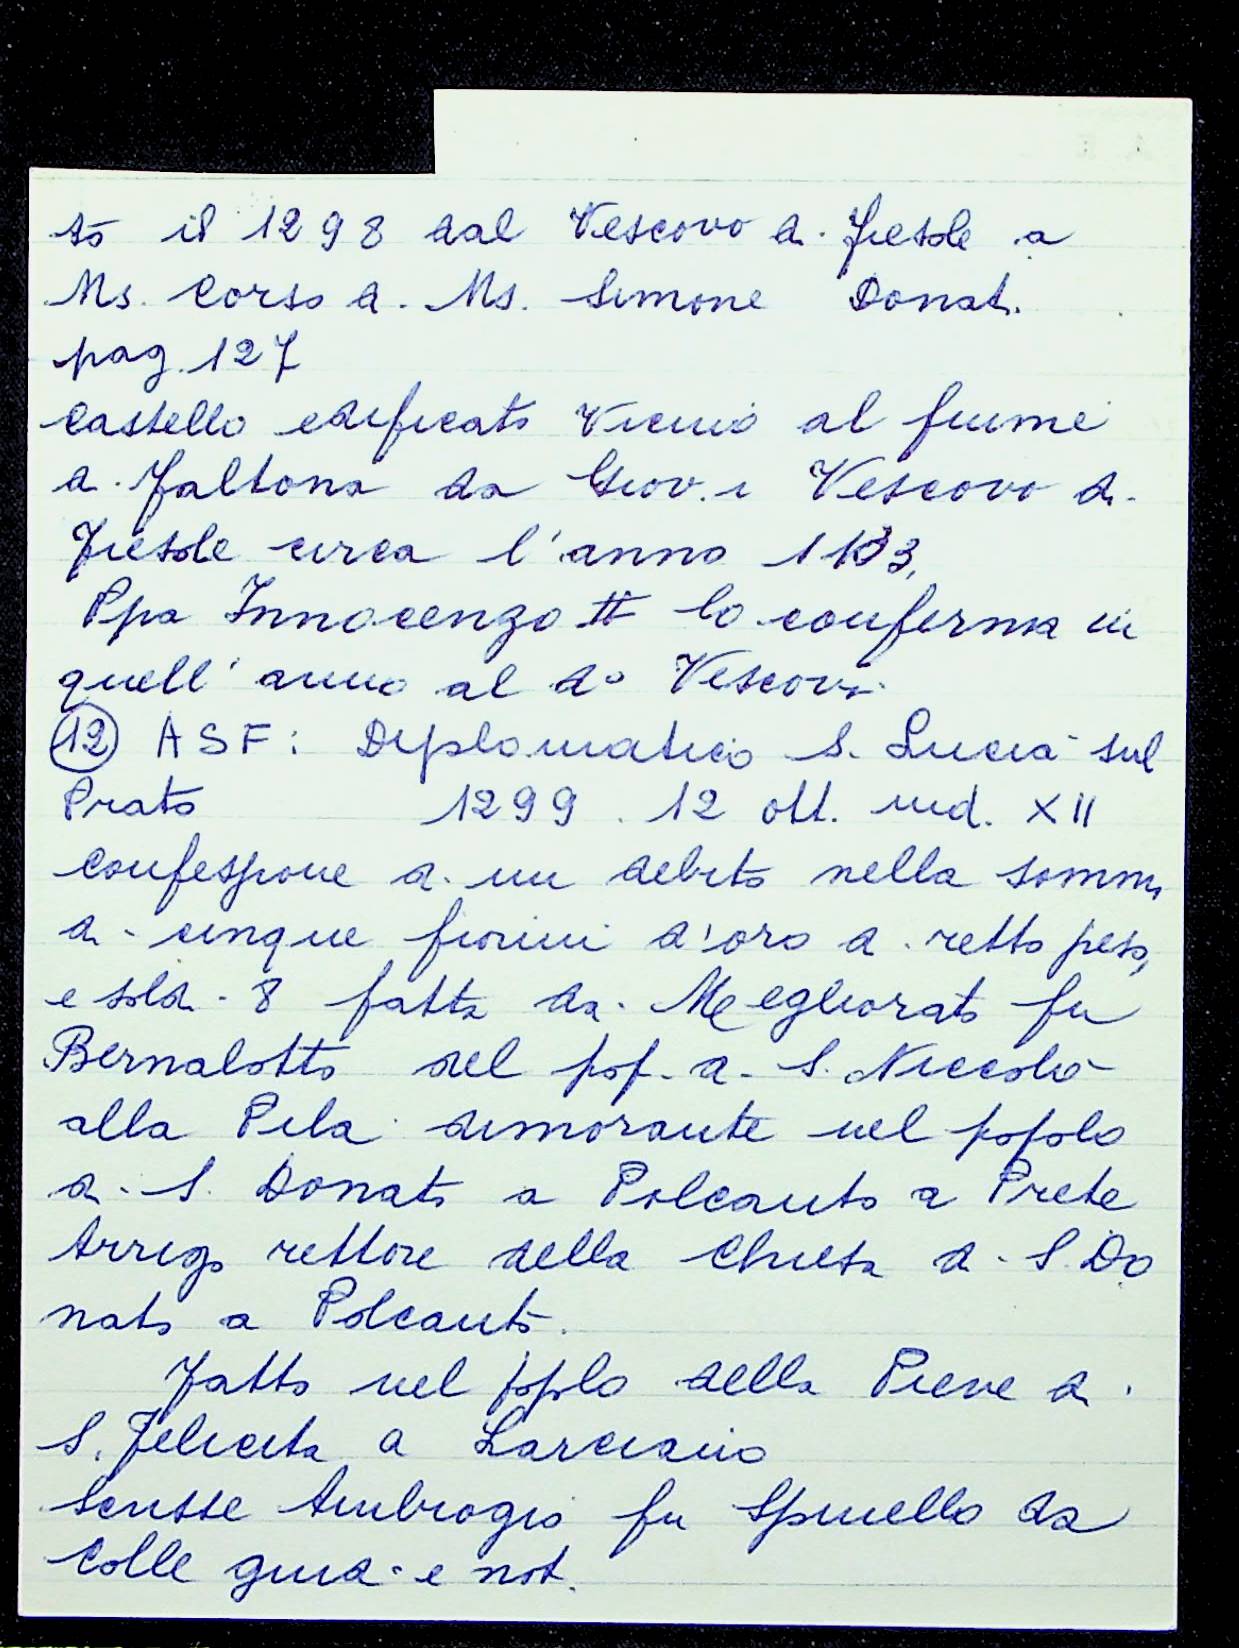 to il 1298 dal Vescovo di Fiesole a
Ms. Corso di Ms. Simone Donati
pag. 127
Castello edificato Vicino al fiume
di Faltona da Giov.i Vescovo di
Fiesole circa l'anno 1133,
Ppa Innocenzo II lo conferma in
quell'anno al do Vescovo
(12) ASF: Diplomatico S. Lucia sul
Prato 1299. 12 ott. ind. XII
confessione di un debito nella somma
di cinque fiorini d'oro di retto peso,
e soldi 8 fatta da Megliorato fu
Bernalotto del pop. di S. Niccolò
alla Pila dimorante nel popolo
di S. Donato a Polcanto a Prete
Arrigo rettore della Chiesa di S. Do
nato a Polcanto.
Fatto nel poplo della Pieve di
S. Felicita a Larciano
Scrisse Ambrogio fu Spinello da
Colle giud. e not.